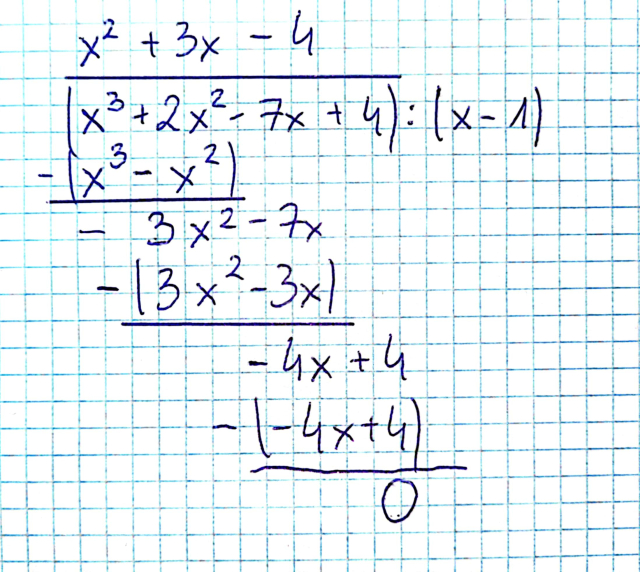 x² + 3x - 4
(x³ + 2x² - 7x + 4) : (x - 1)
-(x³ - x²)
- 3x² - 7x
-(3x² - 3x)
-4x + 4
-(-4x + 4)
0